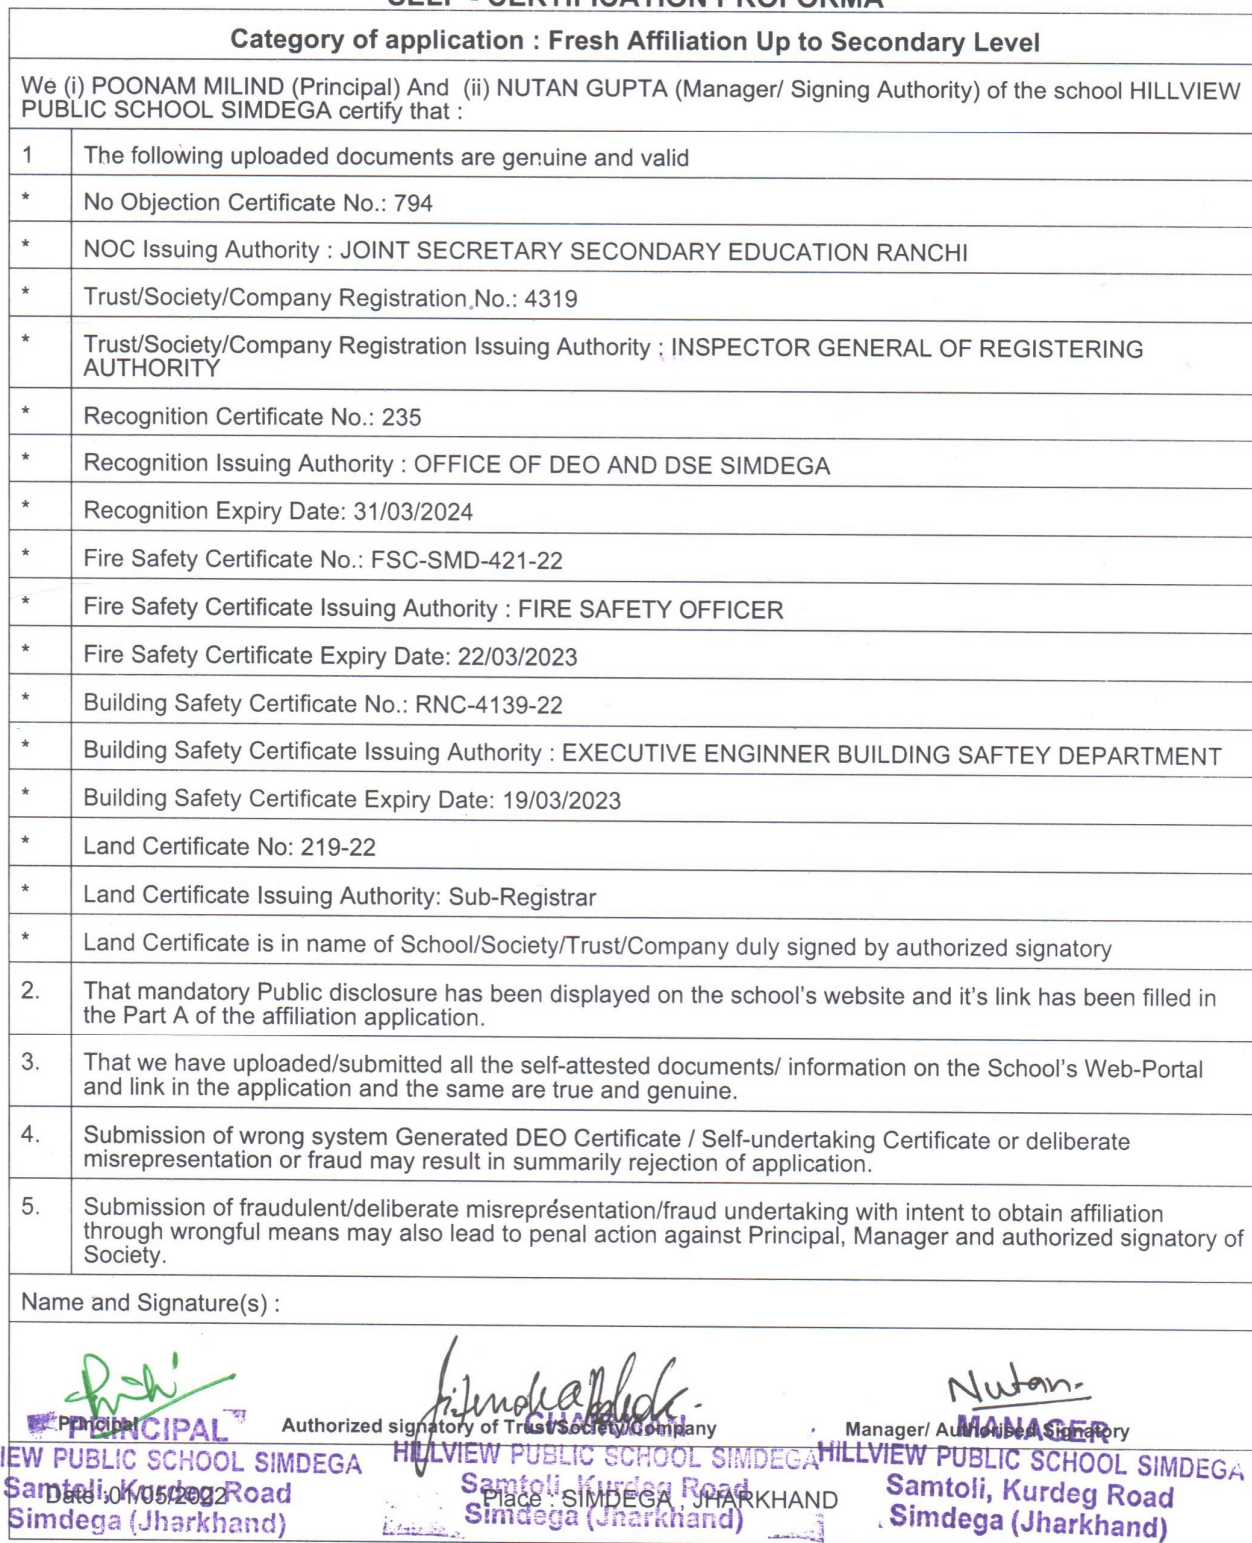 SELF - CERTIFICATION PROFORMA
Category of application : Fresh Affiliation Up to Secondary Level
We (i) POONAM MILIND (Principal) And (ii) NUTAN GUPTA (Manager/ Signing Authority) of the school HILLVIEW
PUBLIC SCHOOL SIMDEGA certify that :
1 The following uploaded documents are genuine and valid
* No Objection Certificate No.: 794
* NOC Issuing Authority : JOINT SECRETARY SECONDARY EDUCATION RANCHI
* Trust/Society/Company Registration No.: 4319
* Trust/Society/Company Registration Issuing Authority : INSPECTOR GENERAL OF REGISTERING
AUTHORITY
* Recognition Certificate No.: 235
* Recognition Issuing Authority : OFFICE OF DEO AND DSE SIMDEGA
* Recognition Expiry Date: 31/03/2024
* Fire Safety Certificate No.: FSC-SMD-421-22
* Fire Safety Certificate Issuing Authority : FIRE SAFETY OFFICER
* Fire Safety Certificate Expiry Date: 22/03/2023
* Building Safety Certificate No.: RNC-4139-22
* Building Safety Certificate Issuing Authority : EXECUTIVE ENGINNER BUILDING SAFTEY DEPARTMENT
* Building Safety Certificate Expiry Date: 19/03/2023
* Land Certificate No: 219-22
* Land Certificate Issuing Authority: Sub-Registrar
* Land Certificate is in name of School/Society/Trust/Company duly signed by authorized signatory
2. That mandatory Public disclosure has been displayed on the school's website and it's link has been filled in
the Part A of the affiliation application.
3. That we have uploaded/submitted all the self-attested documents/ information on the School's Web-Portal
and link in the application and the same are true and genuine.
4. Submission of wrong system Generated DEO Certificate / Self-undertaking Certificate or deliberate
misrepresentation or fraud may result in summarily rejection of application.
5. Submission of fraudulent/deliberate misrepresentation/fraud undertaking with intent to obtain affiliation
through wrongful means may also lead to penal action against Principal, Manager and authorized signatory of
Society.
Name and Signature(s) :
Nutan
Principal Authorized signatory of Trust/Society/Company Manager/ Authorised Signatory
PRINCIPAL CHAIRMAN MANAGER
IEW PUBLIC SCHOOL SIMDEGA HILLVIEW PUBLIC SCHOOL SIMDEGA HILLVIEW PUBLIC SCHOOL SIMDEGA
Samtoli, Kurdeg Road Samtoli, Kurdeg Road Samtoli, Kurdeg Road
Date :01/05/2022 Place : SIMDEGA , JHARKHAND
Simdega (Jharkhand) Simdega (Jharkhand) Simdega (Jharkhand)